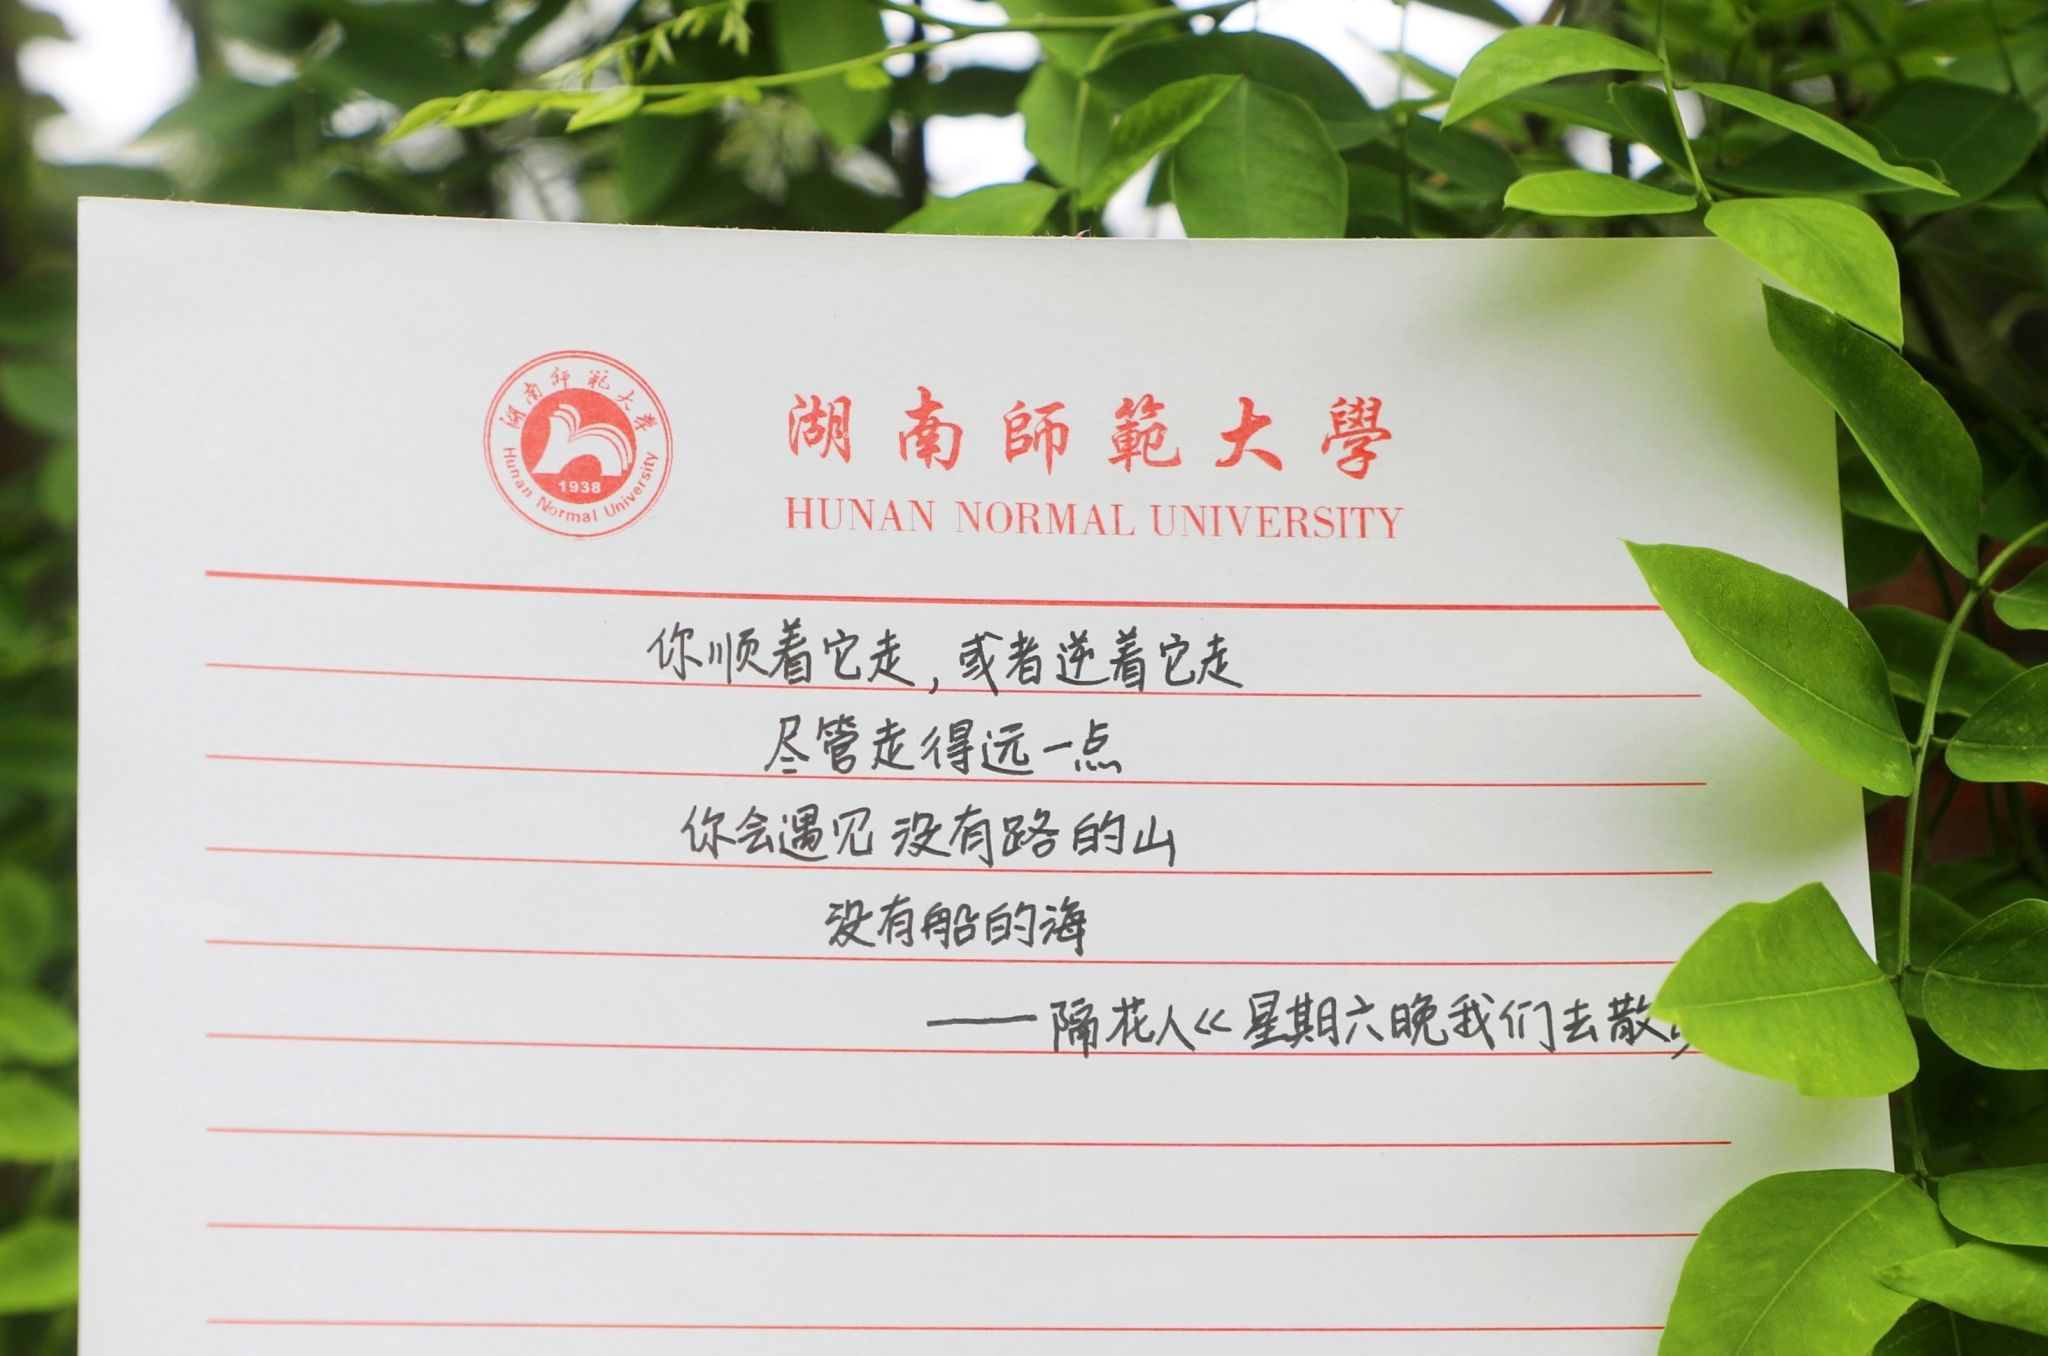 湖南師範大學
Hunan Normal University
1938
湖南師範大學
HUNAN NORMAL UNIVERSITY
你顺着它走，或者逆着它走
尽管走得远一点
你会遇见没有路的山
没有船的海
——隔花人《星期六晚我们去散